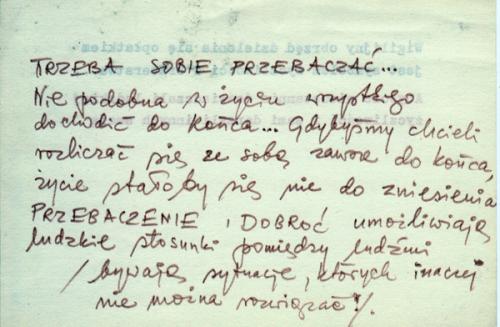 TRZEBA SOBIE PRZEBACZAĆ...
Nie podobna w życiu wszystkiego
dochodzić do końca... Gdybyśmy chcieli
rozliczać się ze sobą zawsze do końca,
życie stałoby się nie do zniesienia
PRZEBACZENIE i DOBROĆ umożliwiają
ludzkie stosunki pomiędzy ludźmi
/bywają sytuacje, których inaczej
nie można rozwiązać!/.